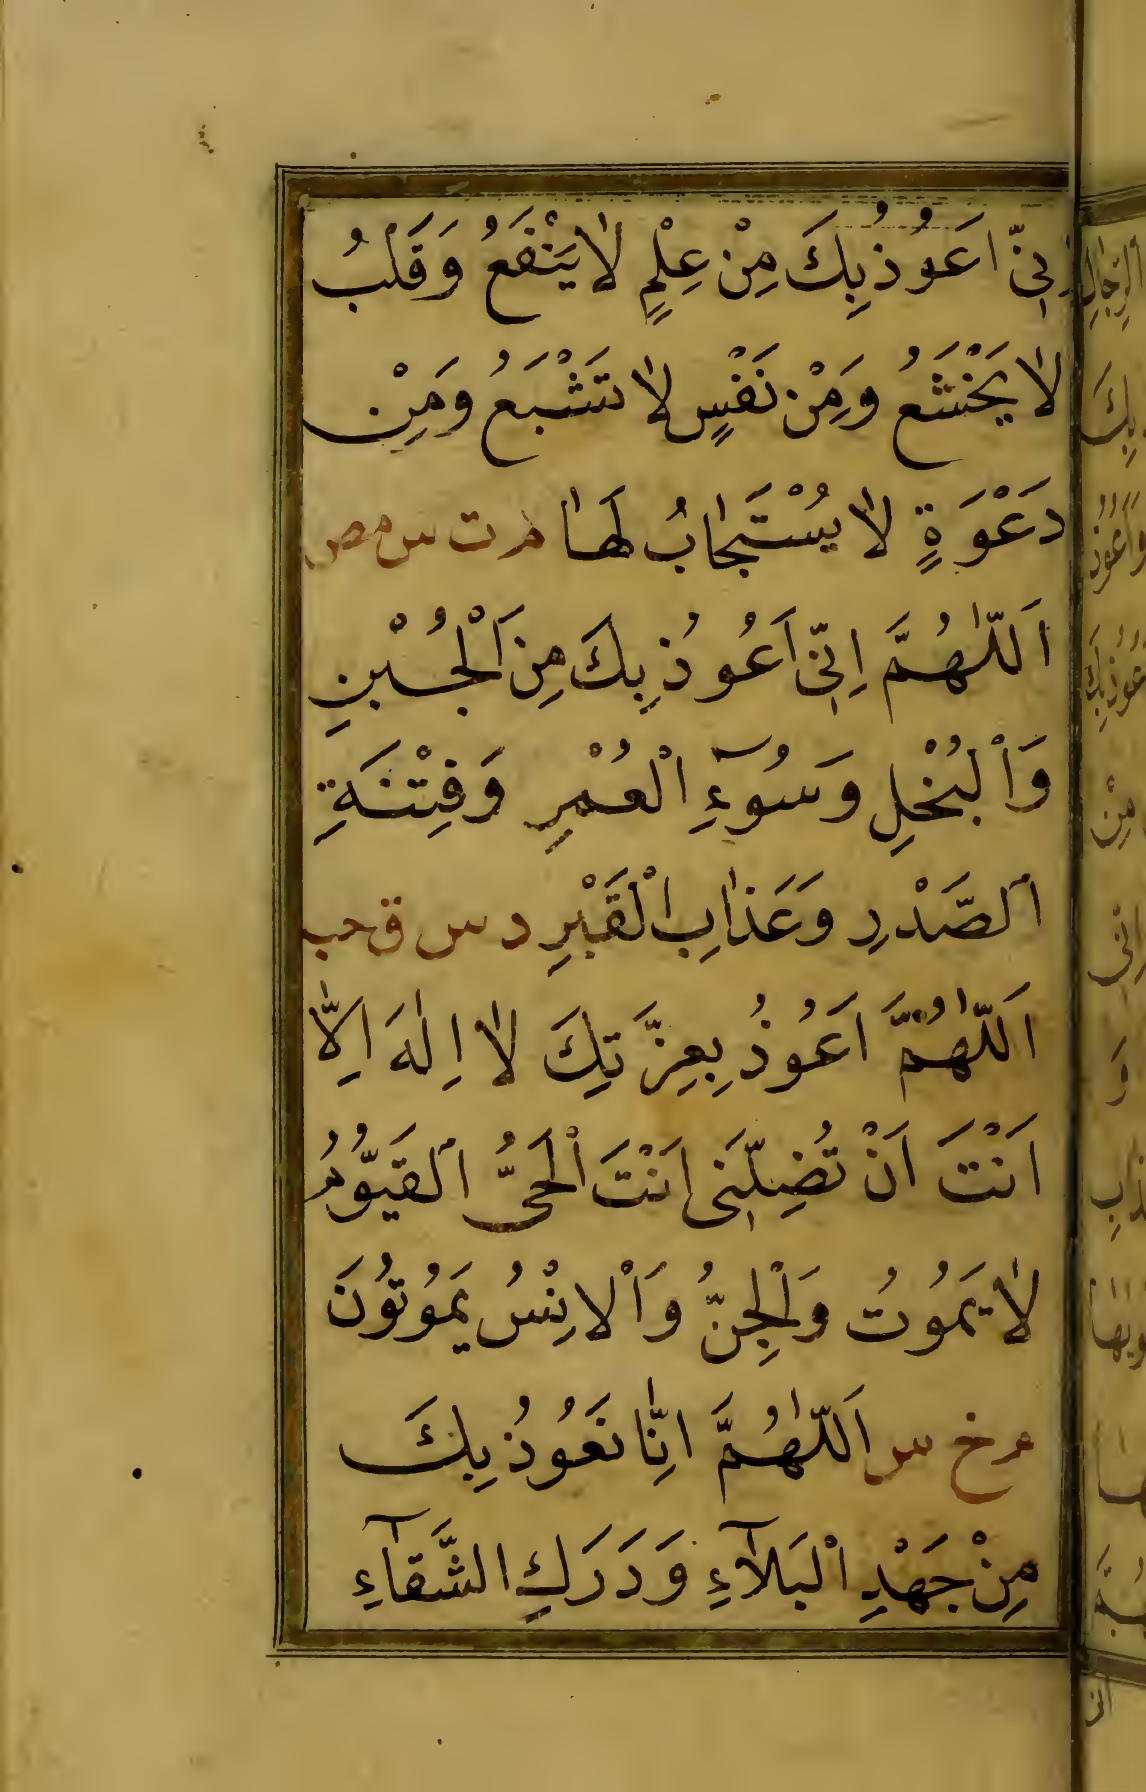 اِنّى اَعُوذُ بِكَ مِنْ عِلْمٍ لاٰ يَنْفَعُ وَقَلْبُ
لاٰ يَخْشَعُ وَمِنْ نَفْسٍ لاٰ تَشْبَعُ وَمِنْ
دَعْوَةٍ لاٰ يُسْتَجٰابُ لَهٰا م ت س مص
اَللّٰهُمَّ اِنّى اَعُوذُ بِكَ مِنَ الْجُبْنِ
وَالْبُخْلِ وَسُوۤءِ الْعُمْرِ وَفِتْنَةِ
الصَّدْرِ وَعَذٰابِ الْقَبْرِ د س ق حب
اَللّٰهُمَّ اَعُوذُ بِعِزَّتِكَ لاٰ اِلٰهَ اِلاّٰ
اَنْتَ اَنْ تُضِلَّنى اَنْتَ الْحَىُّ الْقَيُّومُ
لاٰ يَمُوتُ وَالْجِنُّ وَالْاِنْسُ يَمُوتُونَ
م خ س اَللّٰهُمَّ اِنّٰا نَعُوذُ بِكَ
مِنْ جَهْدِ الْبَلاۤءِ وَدَرَكِ الشَّقاۤءِ